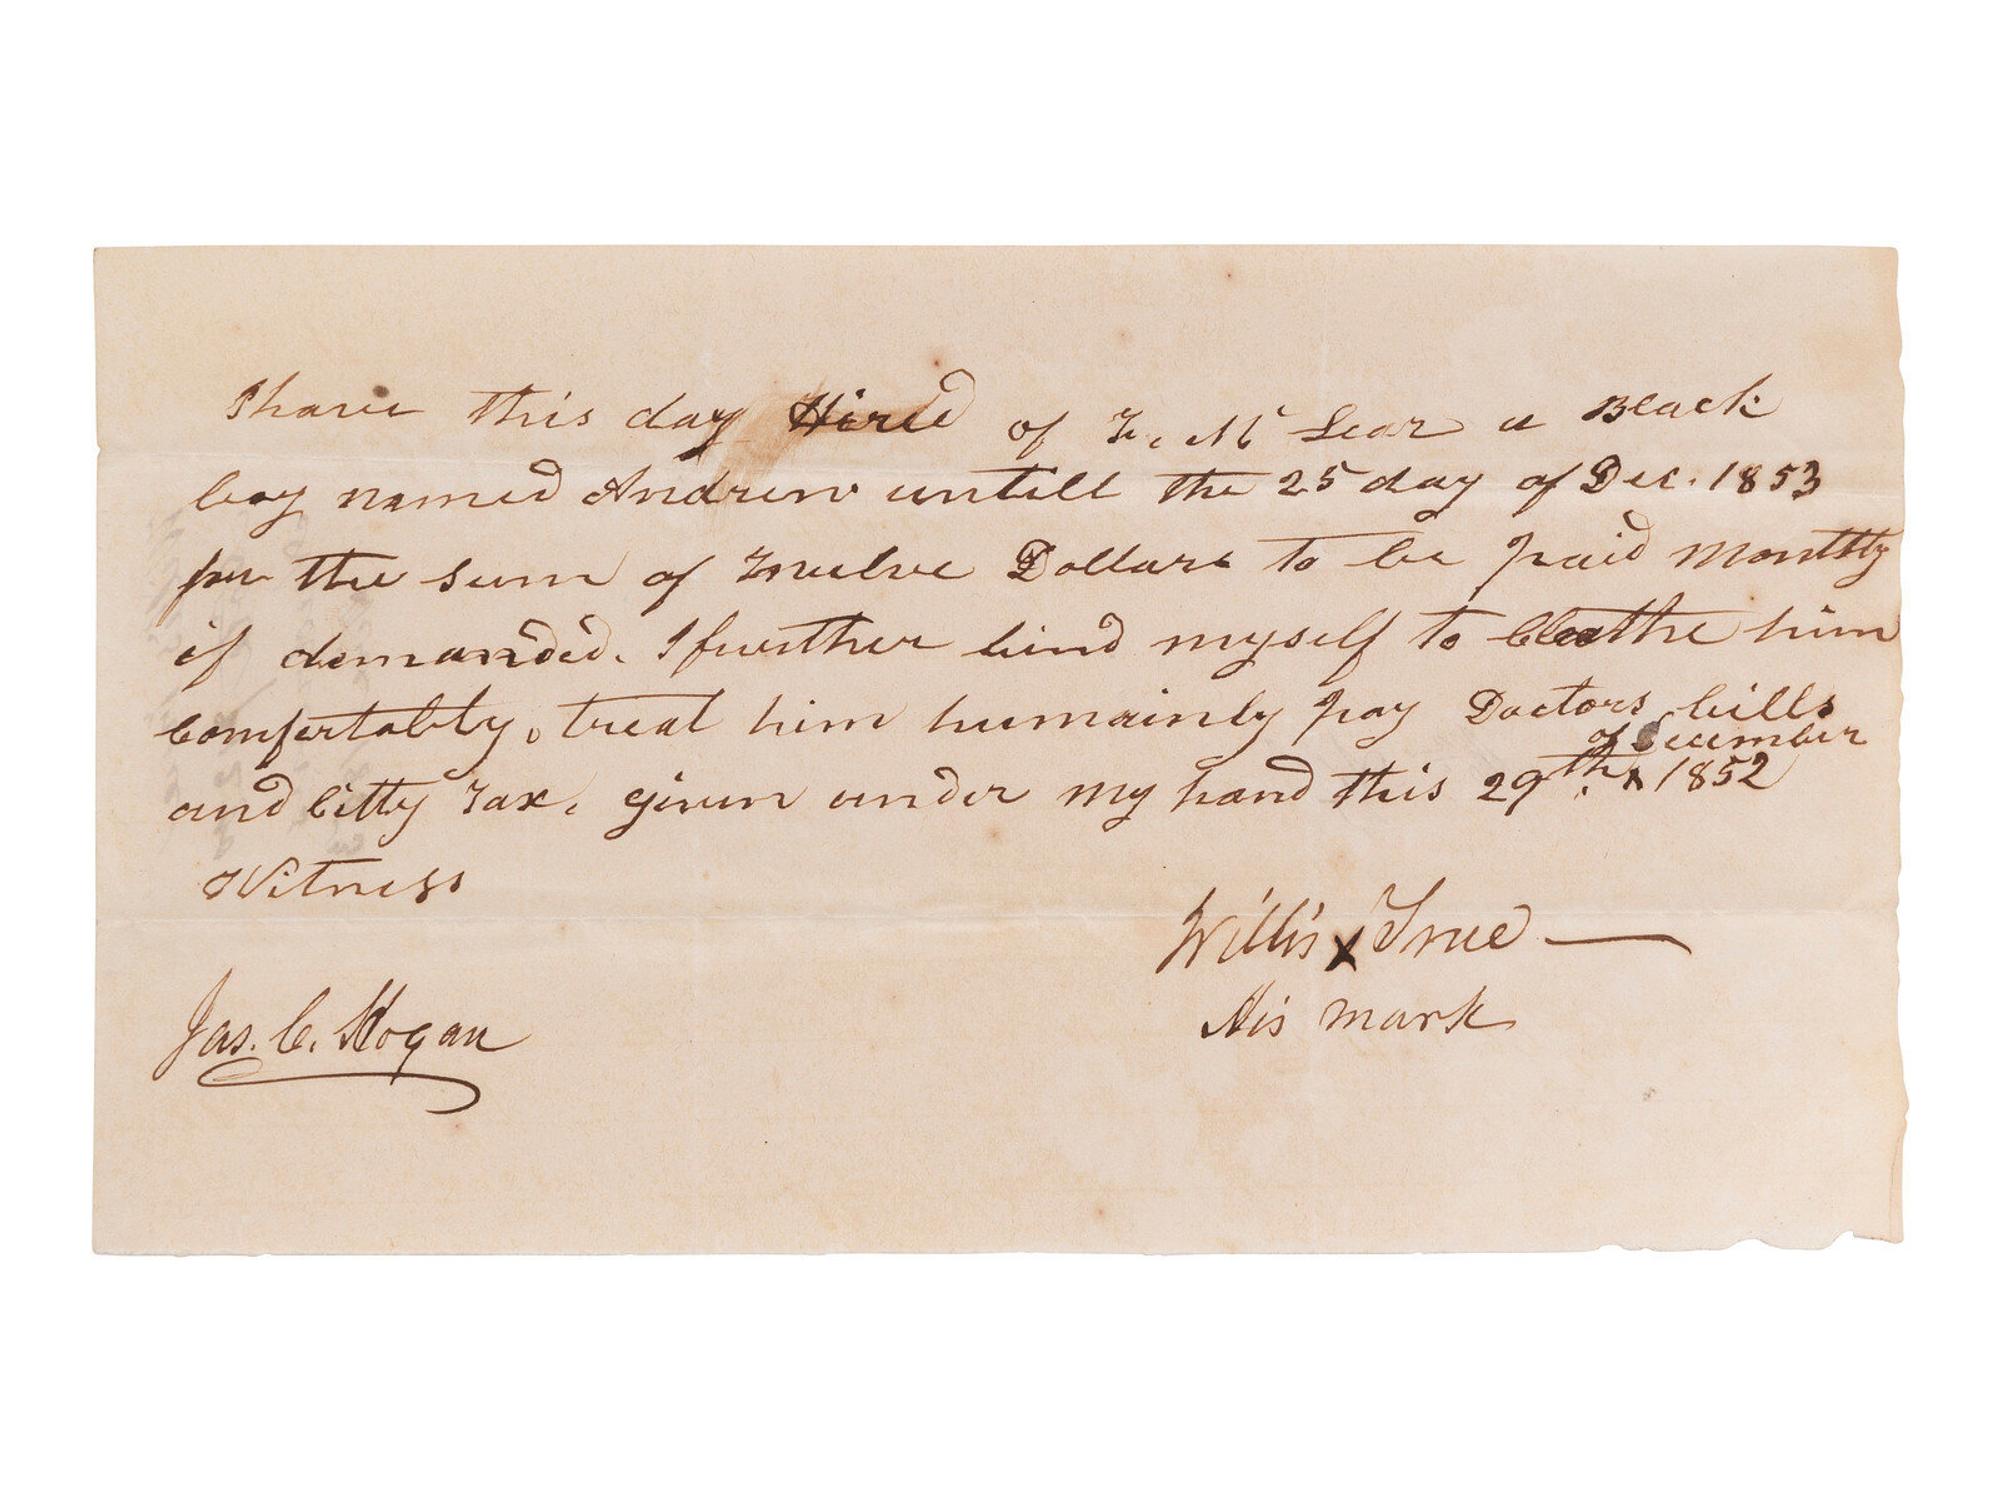 I have this day Hired of T. M Lear a Black
boy named Andrew untill the 25 day of Dec. 1853
for the sum of Twelve Dollars to be paid Monthly
if demanded. I further bind myself to Cloathe him
Comfertably, treat him humainly pay Doctors bills
of December
and Citty Tax. given under my hand this 29th. x 1852
Witness
Willis x True
His mark
Jas. C. Hogan